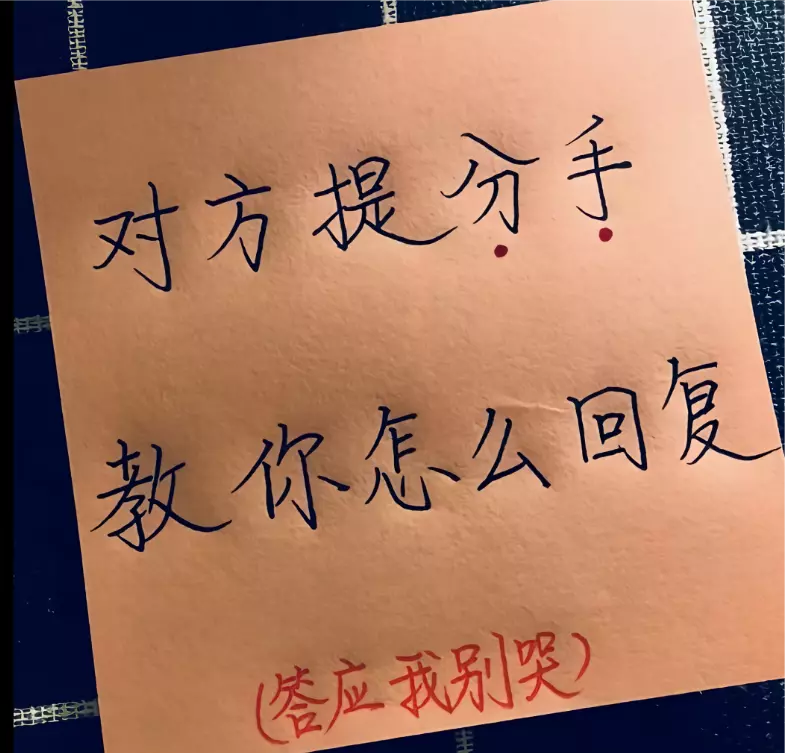 对方提分手
教你怎么回复
(答应我别哭)